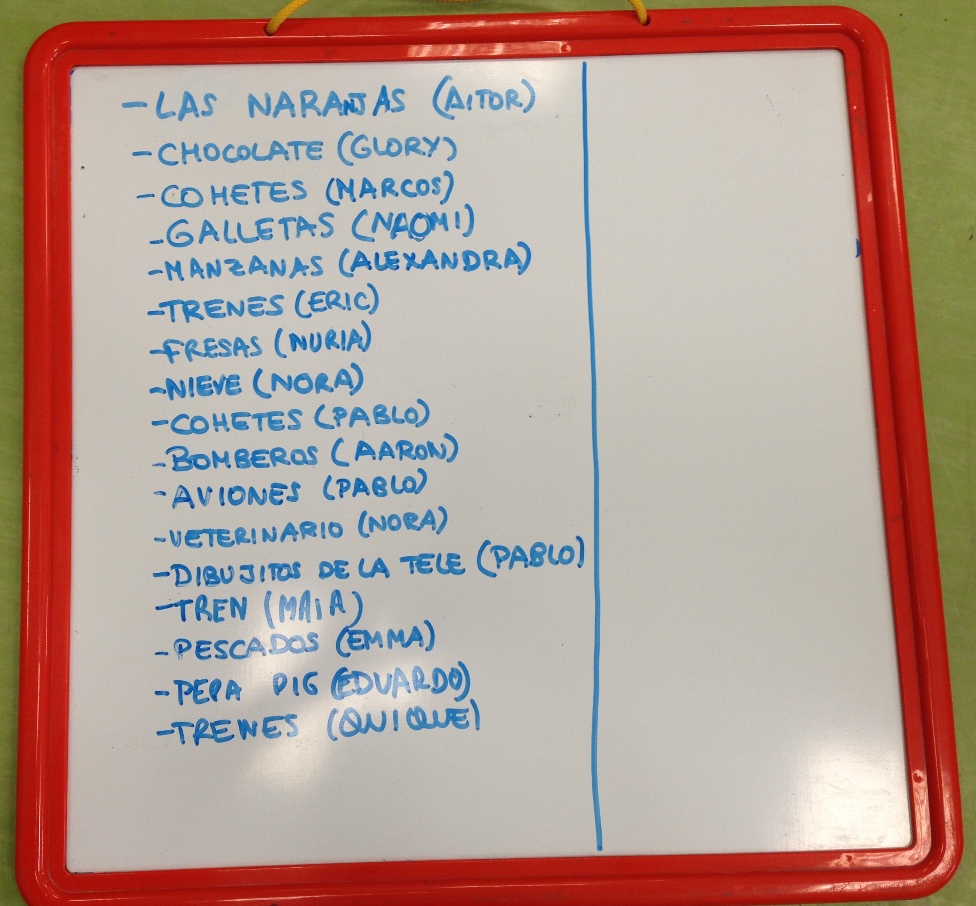 - LAS NARANJAS (AITOR)
- CHOCOLATE (GLORY)
- COHETES (MARCOS)
- GALLETAS (NAOMI)
- MANZANAS (ALEXANDRA)
- TRENES (ERIC)
- FRESAS (NURIA)
- NIEVE (NORA)
- COHETES (PABLO)
- BOMBEROS (AARON)
- AVIONES (PABLO)
- VETERINARIO (NORA)
- DIBUJITOS DE LA TELE (PABLO)
- TREN (MAIA)
- PESCADOS (EMMA)
- PEPA PIG (EDUARDO)
- TRENES (QUIQUE)